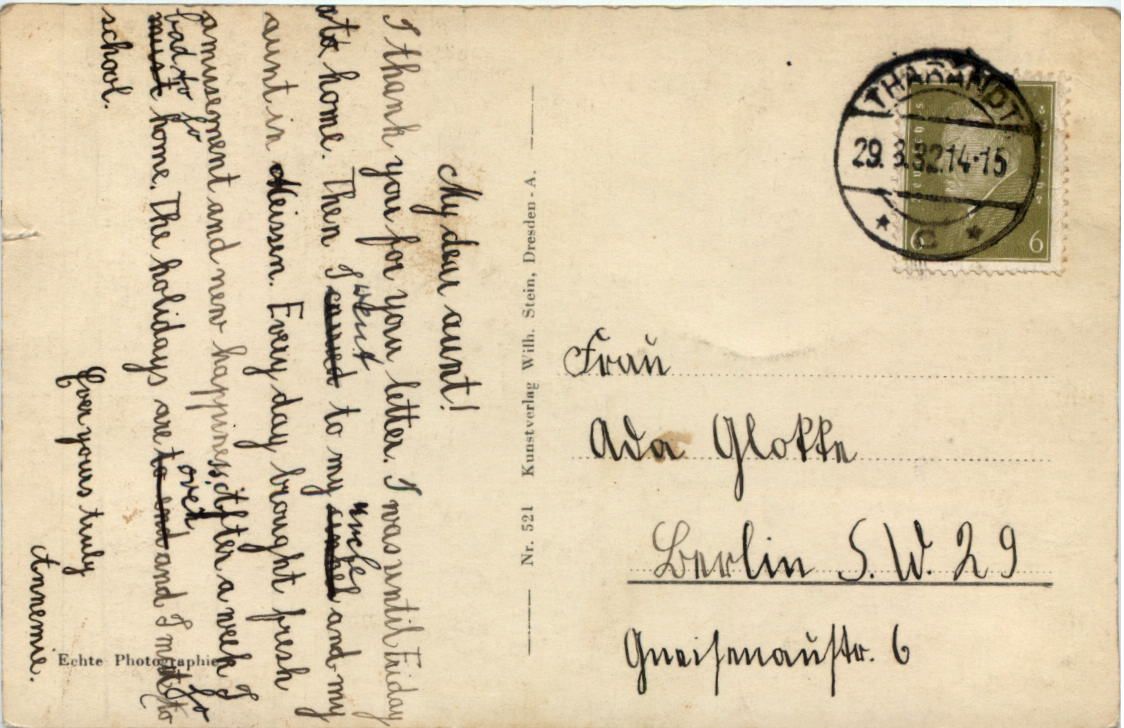 My dear aunt!
I thank you for your letter. I was until Friday
at home. Then I went to my uncle and my
aunt in Meissen. Every day brought fresh
amusement and new happiness, After a week I
had to go
must home. The holidays are to end over and I must go to
school.
Ever yours truly
Annemie.
Echte Photographie
Nr. 521 Kunstverlag Wilh. Stein, Dresden-A.
THARANDT
29.3.32.14-15
* c *
6 6
Frau
Ada Glokke
Berlin S.W. 29
Gneisenaustr. 6